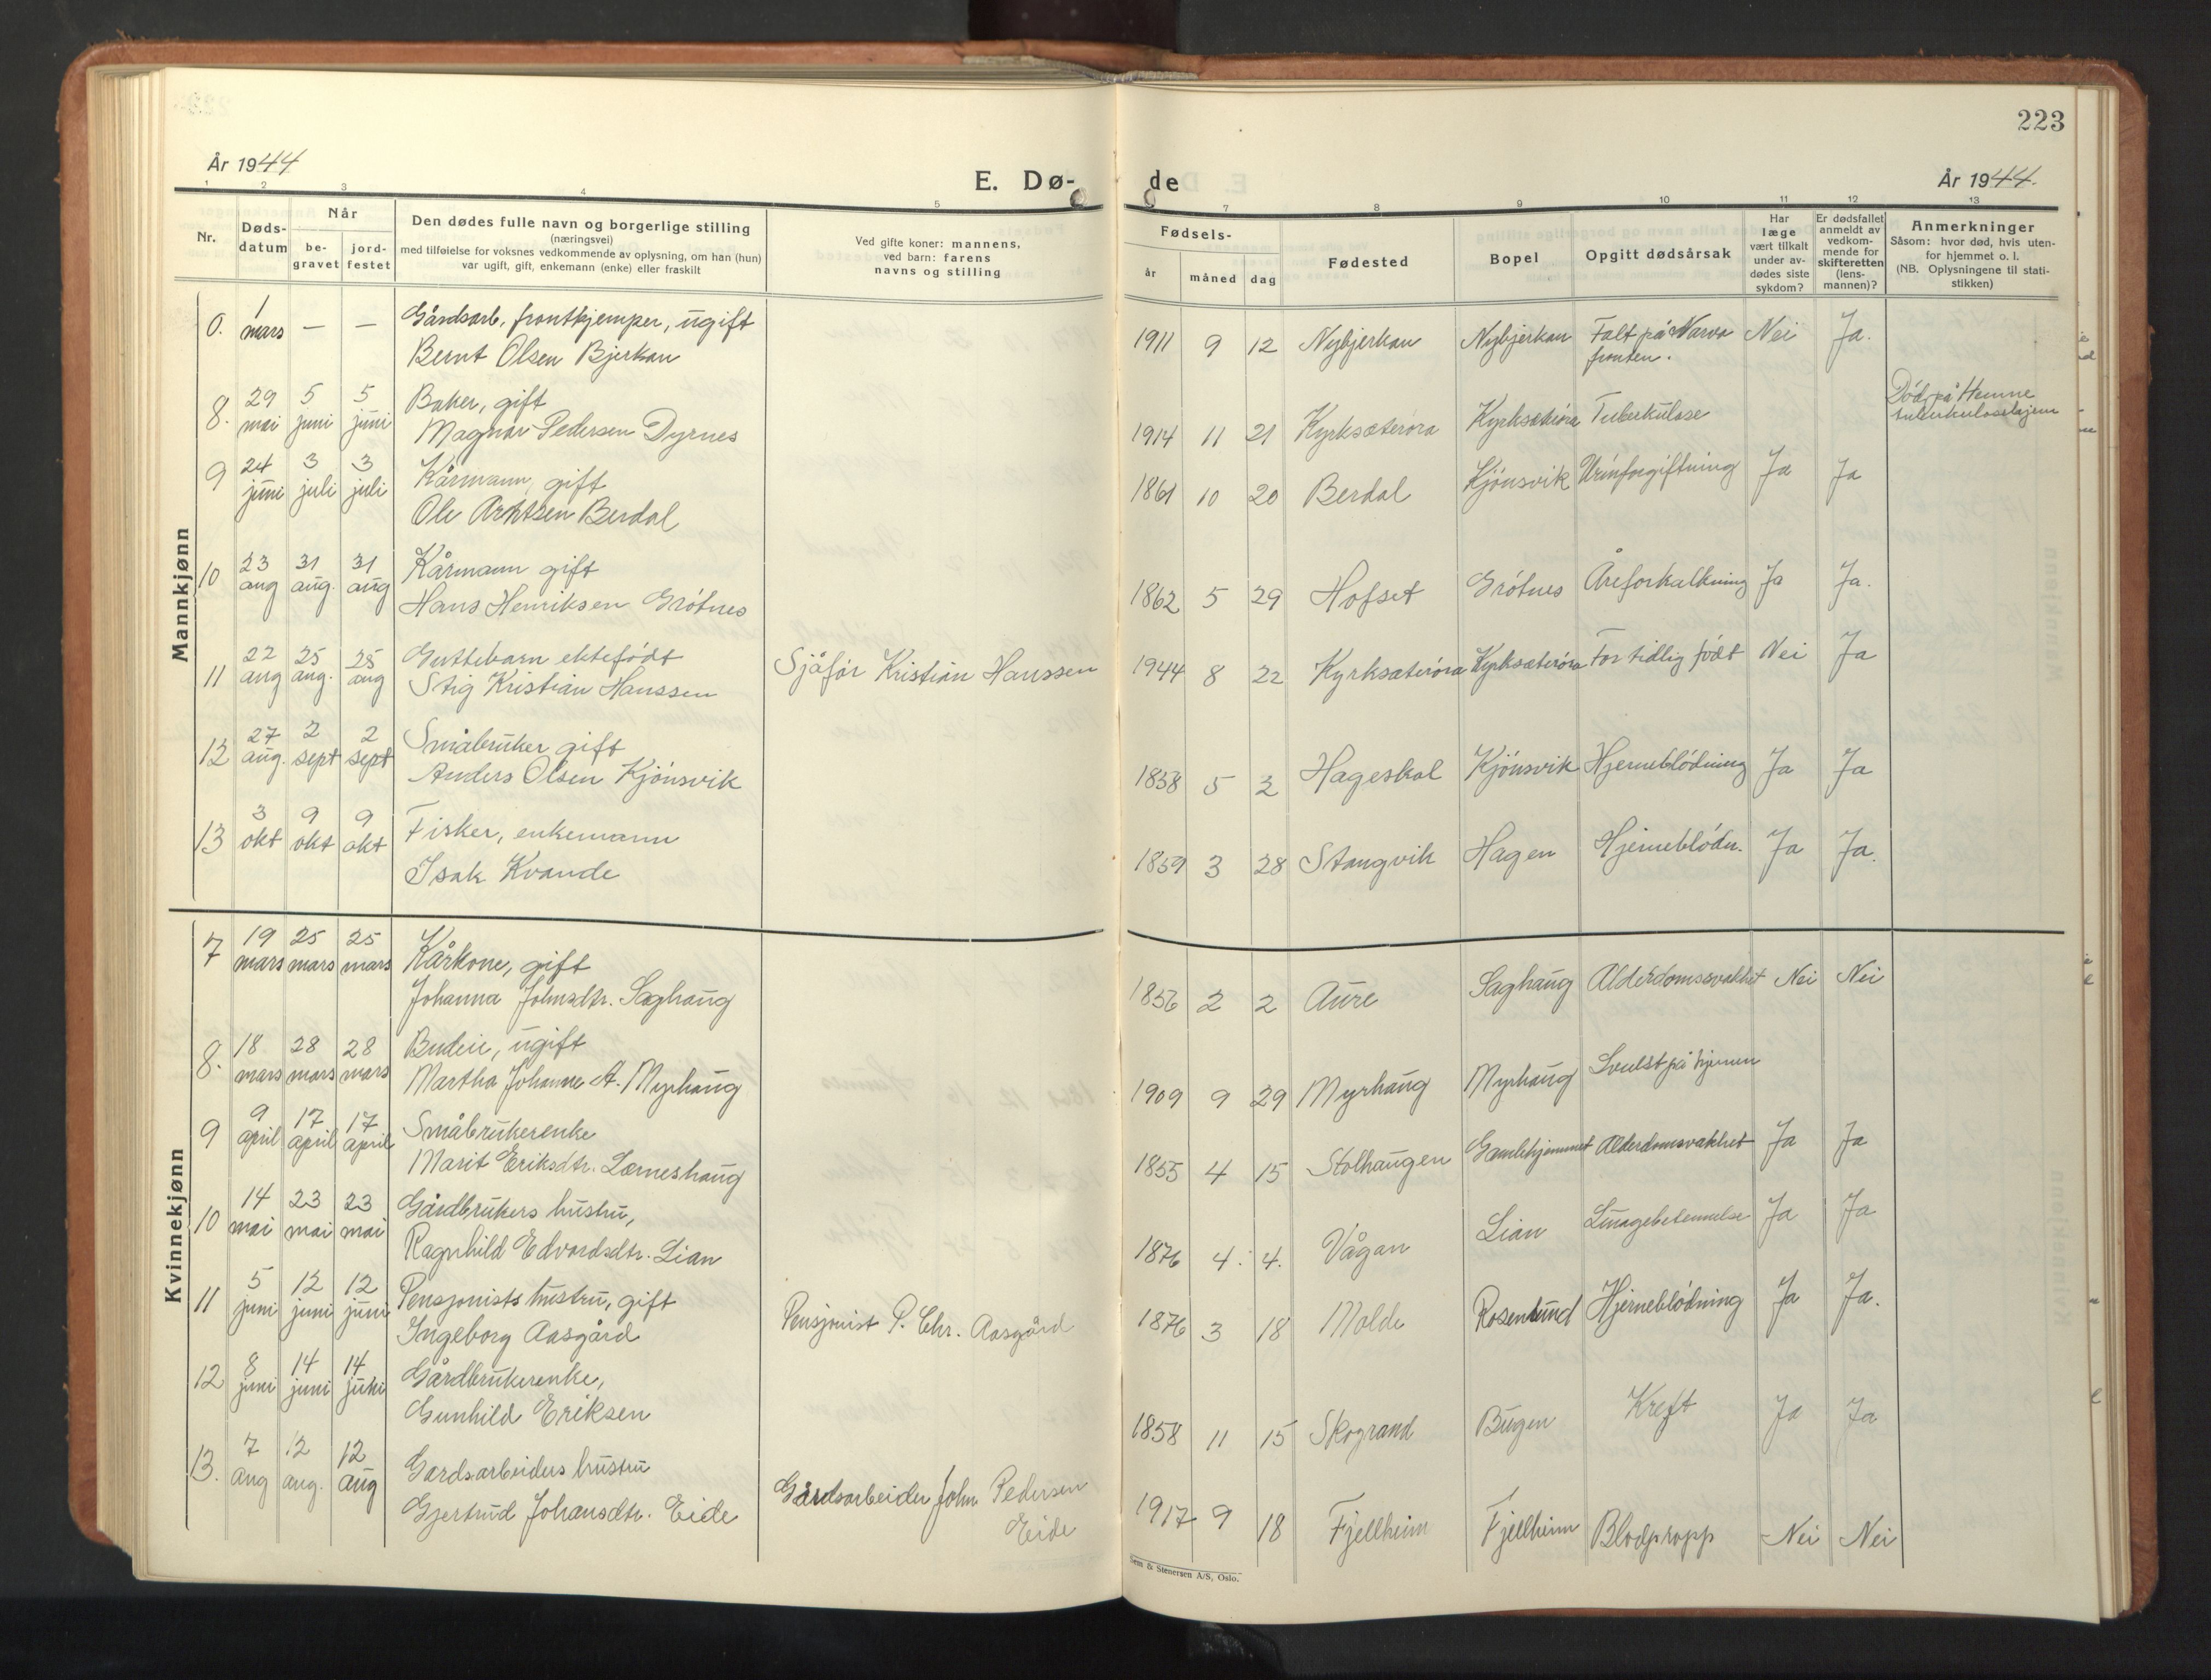 223
År 1944
E. Dø-
de
År 1944.
1 2 3 4 5 7 8 9 10 11 12 13
Nr.
Døds-
datum
Når
be-
gravet
jord-
festet
Den dødes fulle navn og borgerlige stilling
(næringsvei)
med tilføielse for voksnes vedkommende av oplysning, om han (hun)
var ugift, gift, enkemann (enke) eller fraskilt
Ved gifte koner: mannens,
ved barn: farens
navns og stilling
Fødsels-
år måned dag
Fødested
Bopel
Opgitt dødsårsak
Har
læge
vært tilkalt
under av-
dødes siste
sykdom?
Er dødsfallet
anmeldt av
vedkom-
mende for
skifteretten
(lens-
mannen)?
Anmerkninger
Såsom: hvor død, hvis uten-
for hjemmet o. l.
(NB. Oplysningene til stati-
stikken)
Mannkjønn
0. 1 mars — — Gårdsarb, frontkjemper, ugift
Bernt Olsen Bjerkan
1911 9 12 Nybjerkan Nybjerkan Falt på Narva Nei Ja.
fronten.
8. 29 mai 5 juni 5 juni Baker, gift
Magnar Pedersen Dyrnes
1914 11 21 Kyrksæterøra Kyrksæterøra Tuberkulose
Död på Hemne
tuberkulosehjem
9 24 juni 3 juli 3 juli Kårmann, gift
Ole Arntsen Berdal
1861 10 20 Berdal Kjönsvik Urinforgiftning Ja Ja
10 23 aug 31 aug. 31 aug Kårmann gift
Hans Henriksen Grötnes
1862 5 29 Hofset Grötnes Åreforkalkning Ja Ja.
11 22 aug 25 aug. 25 aug Guttebarn ektefödt
Stig Kristian Hanssen
Sjåför Kristian Hanssen
1944 8 22 Kyrksæteröra Kyrksæteröra For tidlig födt Nei Ja
12 27 aug. 2 sept 2 sept Småbruker gift
Anders Olsen Kjönsvik
1858 5 2 Hageskal Kjönsvik Hjerneblödning Ja Ja
13 3 okt 9 okt 9 okt Fisker, enkemann
Isak Kvande
1859 3 28 Stangvik Hagen Hjerneblödn. Ja Ja.
Kvinnekjønn
7 19 mars 25 mars 25 mars Kårkone, gift
Johanna Johnsdtr. Saghaug
1856 2 2 Aure Saghaug Alderdomssvakhet Nei Nei
8. 18 mars 28 mars 28 mars Budeie, ugift
Martha Johanne A. Myrhaug
1909 9 29 Myrhaug Myrhaug Svulst på hjernen
9 9 april 17 april 17 april Småbrukerenke
Marit Eriksdtr. Lerneshaug
1855 4 15 Stolhaugen Gamlehjemmet Alderdomsvakhet Ja Ja
10 14 mai 23 mai 23 mai Gårdbrukers hustru,
Ragnhild Edvardsdtr. Lian
1876 4. 4. Vågan Lian Lungebetennelse Ja Ja
11 5 juni 12 juni 12 juni Pensjonists hustru, gift
Ingeborg Aasgård
Pensjonist P. Chr. Aasgård
1876 3 18 Molde Rosenlund Hjerneblödning Ja Ja.
12 8 juni 14 juni 14 juni Gårdbrukerenke,
Gunhild Eriksen
1858 11 15 Skogrand Bugen Kreft Ja Ja
13. 7 aug 12 aug. 12 aug Gardsarbeiders hustru
Gjertrud Johansdtr. Eide
Gårdsarbeider John Pedersen
Eide
1917 9 18 Fjellheim Fjellheim Blodpropp Nei Nei
Sem & Stenersen A/S, Oslo.